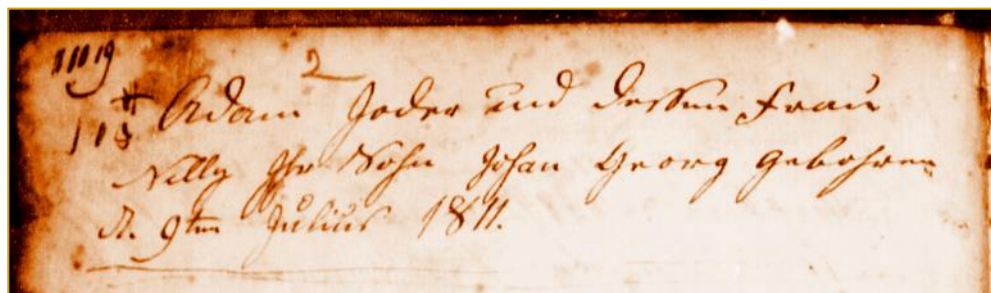 2
Adam Joder und dessen Frau
Nelly Ihr Sohn Johan Georg gebohren
d. 9ten Julius 1811.